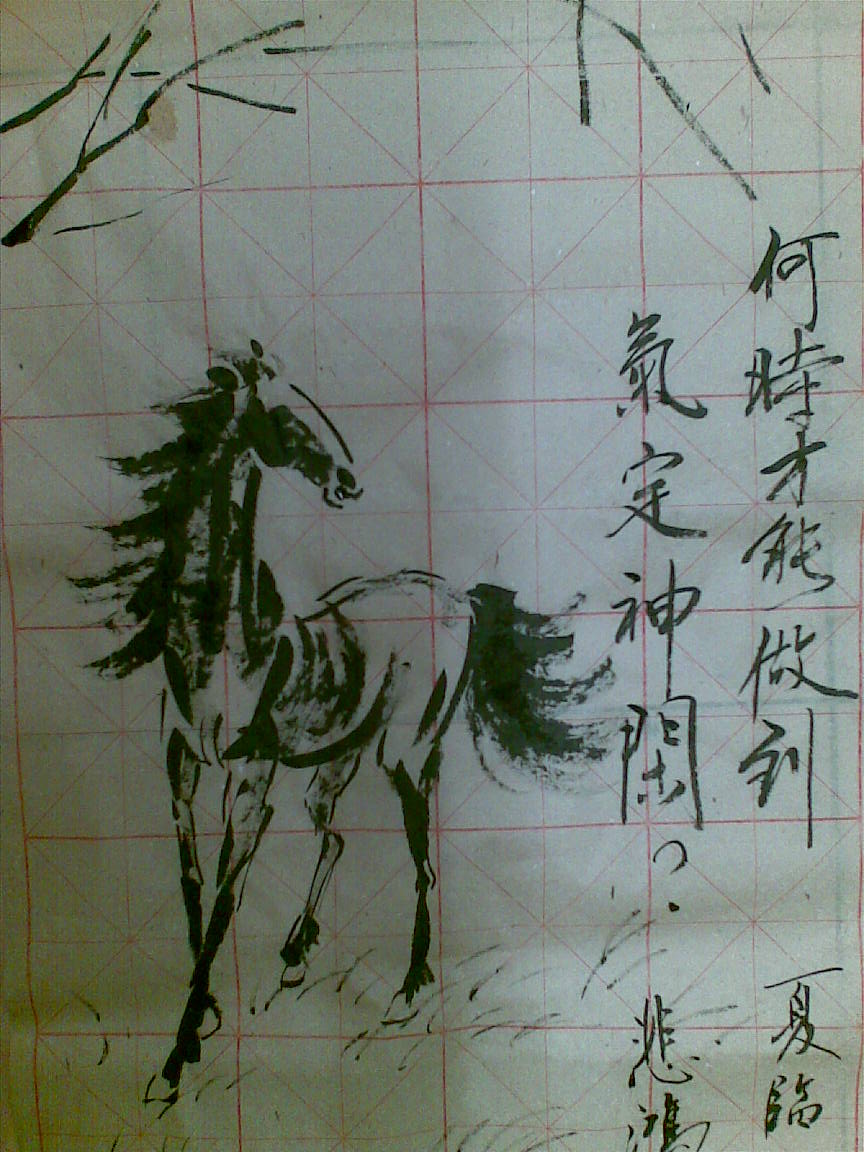 何時才能做到
氣定神閑?
夏臨
悲鴻